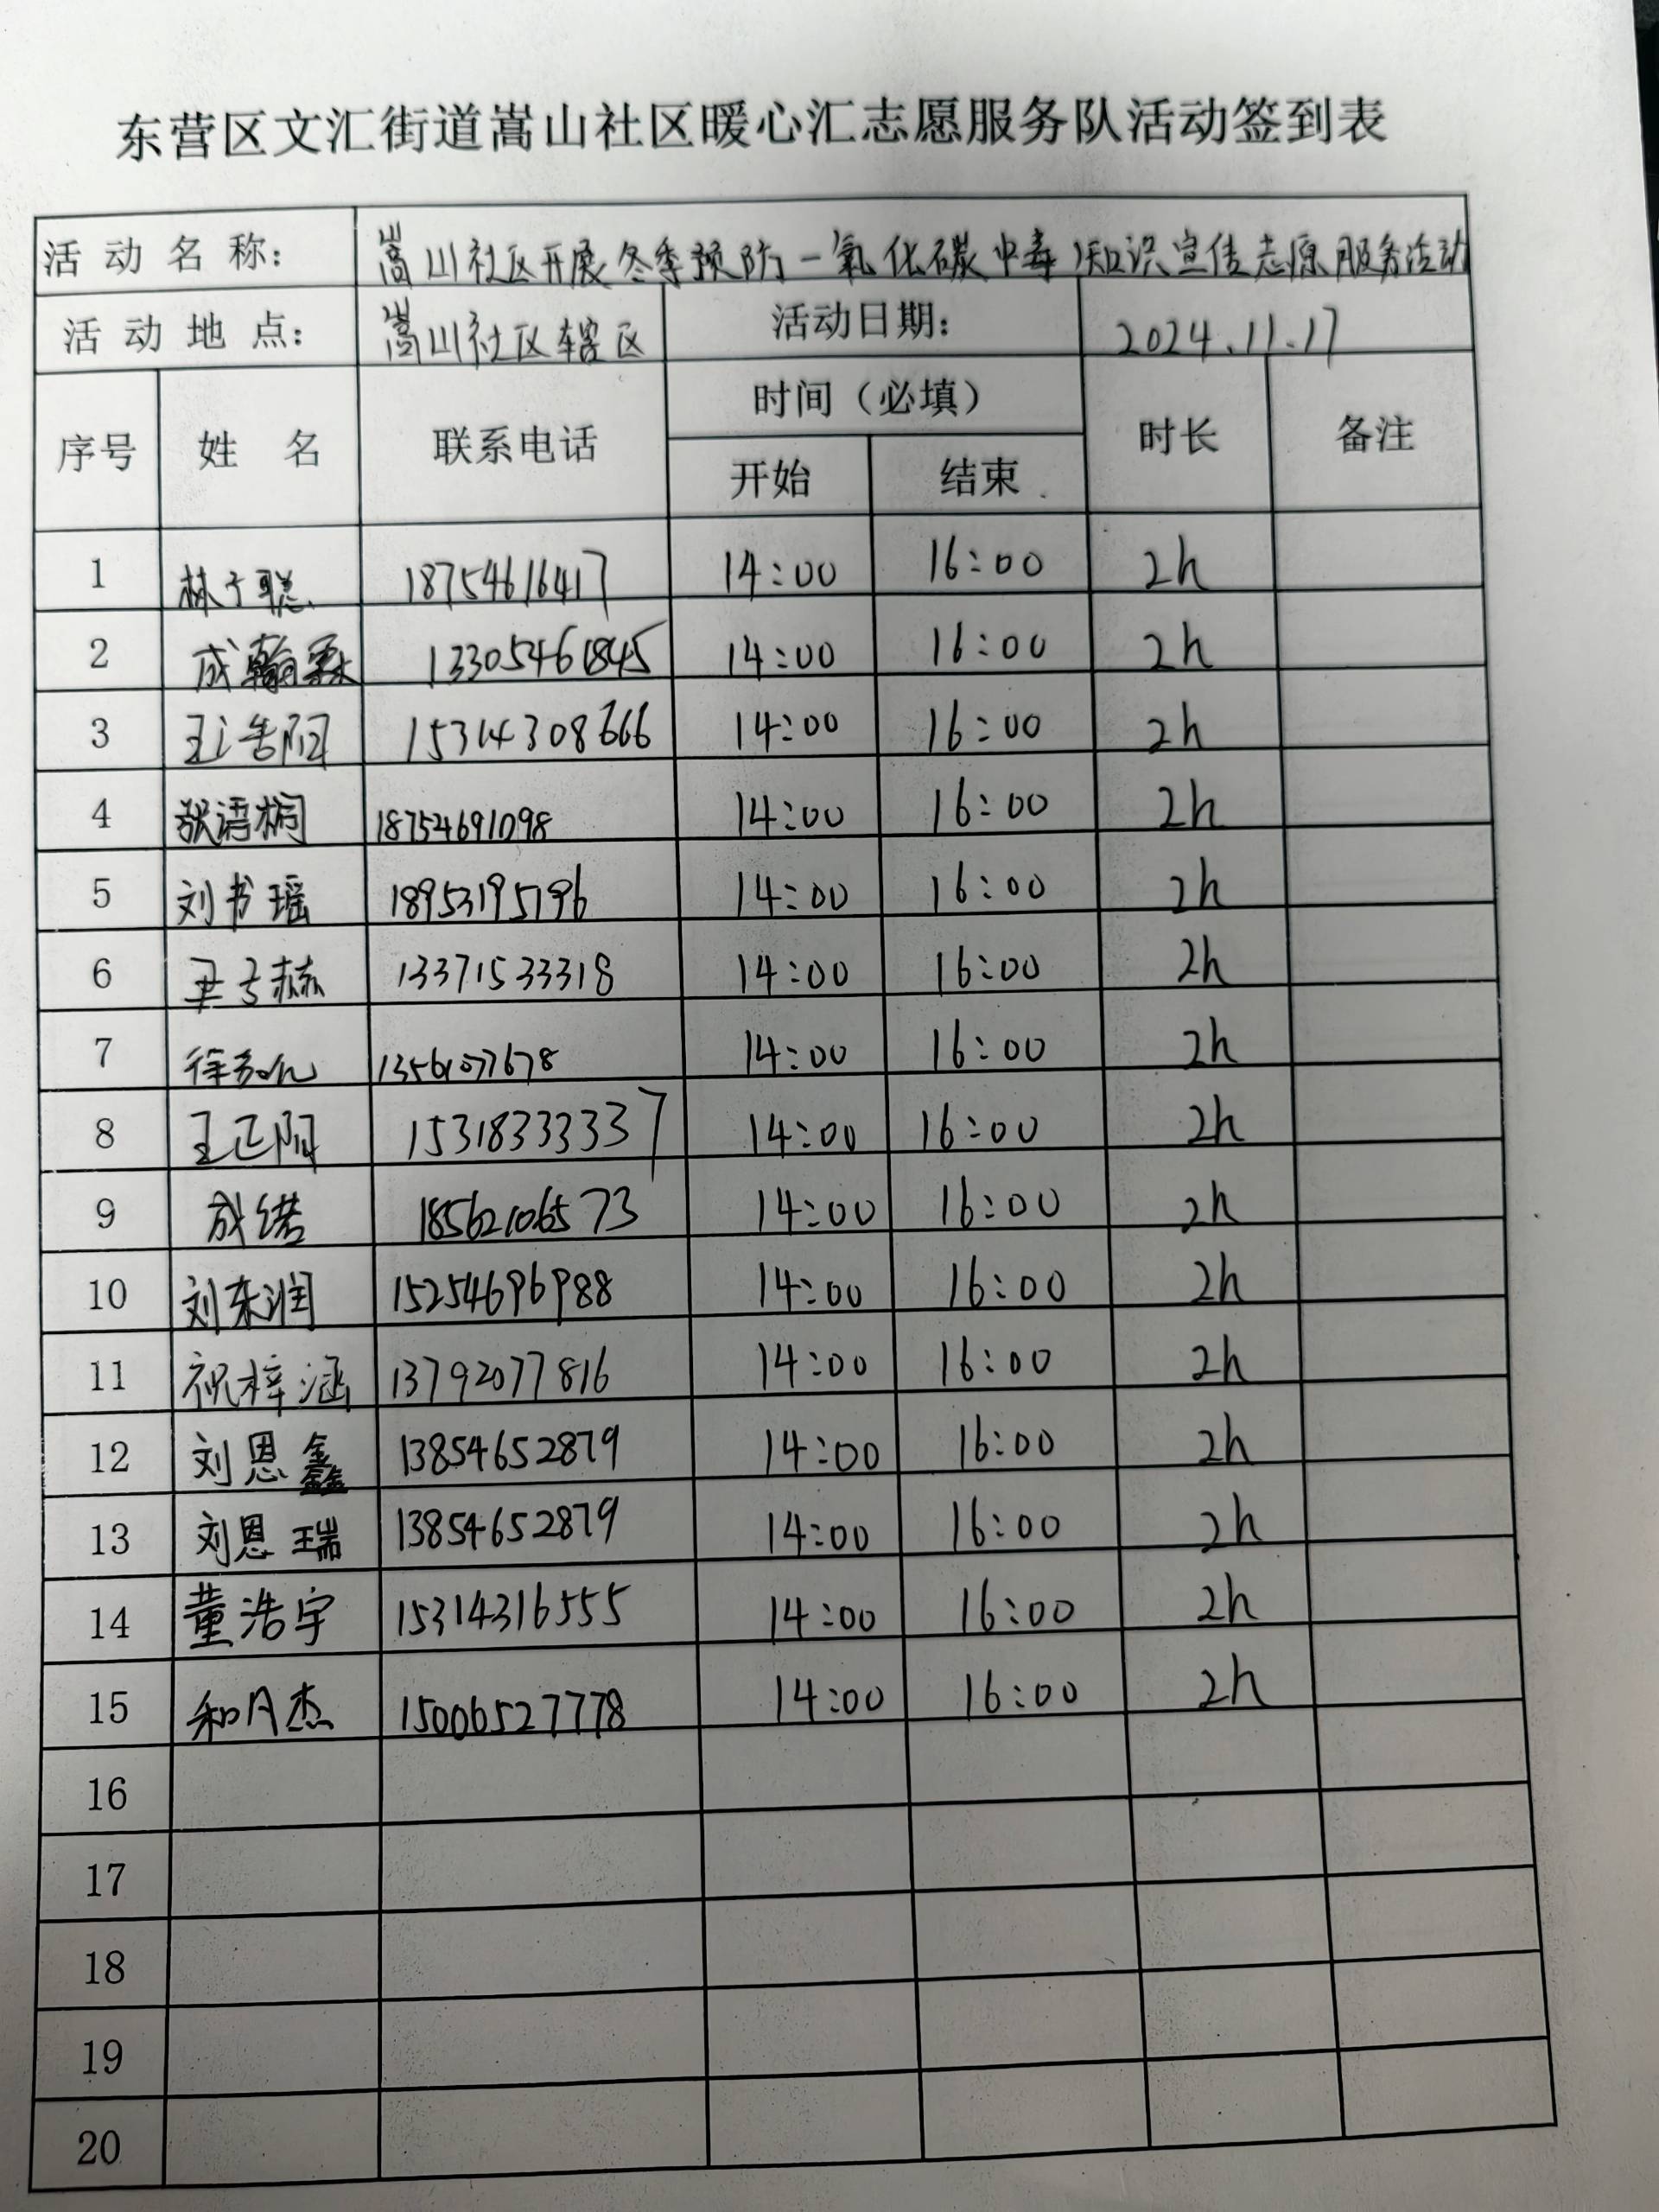 东营区文汇街道嵩山社区暖心汇志愿服务队活动签到表
活动名称： 嵩山社区开展冬季预防一氧化碳中毒知识宣传志愿服务活动
活动地点： 嵩山社区辖区 活动日期： 2024.11.17
序号 姓 名 联系电话 时间（必填） 时长 备注
开始 结束
1 林子聪 18754616417 14:00 16:00 2h
2 成翰霖 13305461845 14:00 16:00 2h
3 王浩阳 15314308666 14:00 16:00 2h
4 张语桐 18754691098 14:00 16:00 2h
5 刘书瑶 18953195796 14:00 16:00 2h
6 尹子赫 13371533318 14:00 16:00 2h
7 徐 13561077678 14:00 16:00 2h
8 王正阳 15318333337 14:00 16:00 2h
9 成绪 18562106573 14:00 16:00 2h
10 刘东润 15254696988 14:00 16:00 2h
11 祝梓涵 13792077816 14:00 16:00 2h
12 刘恩鑫 13854652879 14:00 16:00 2h
13 刘恩瑞 13854652879 14:00 16:00 2h
14 董浩宇 15314316555 14:00 16:00 2h
15 和月杰 15006527778 14:00 16:00 2h
16
17
18
19
20